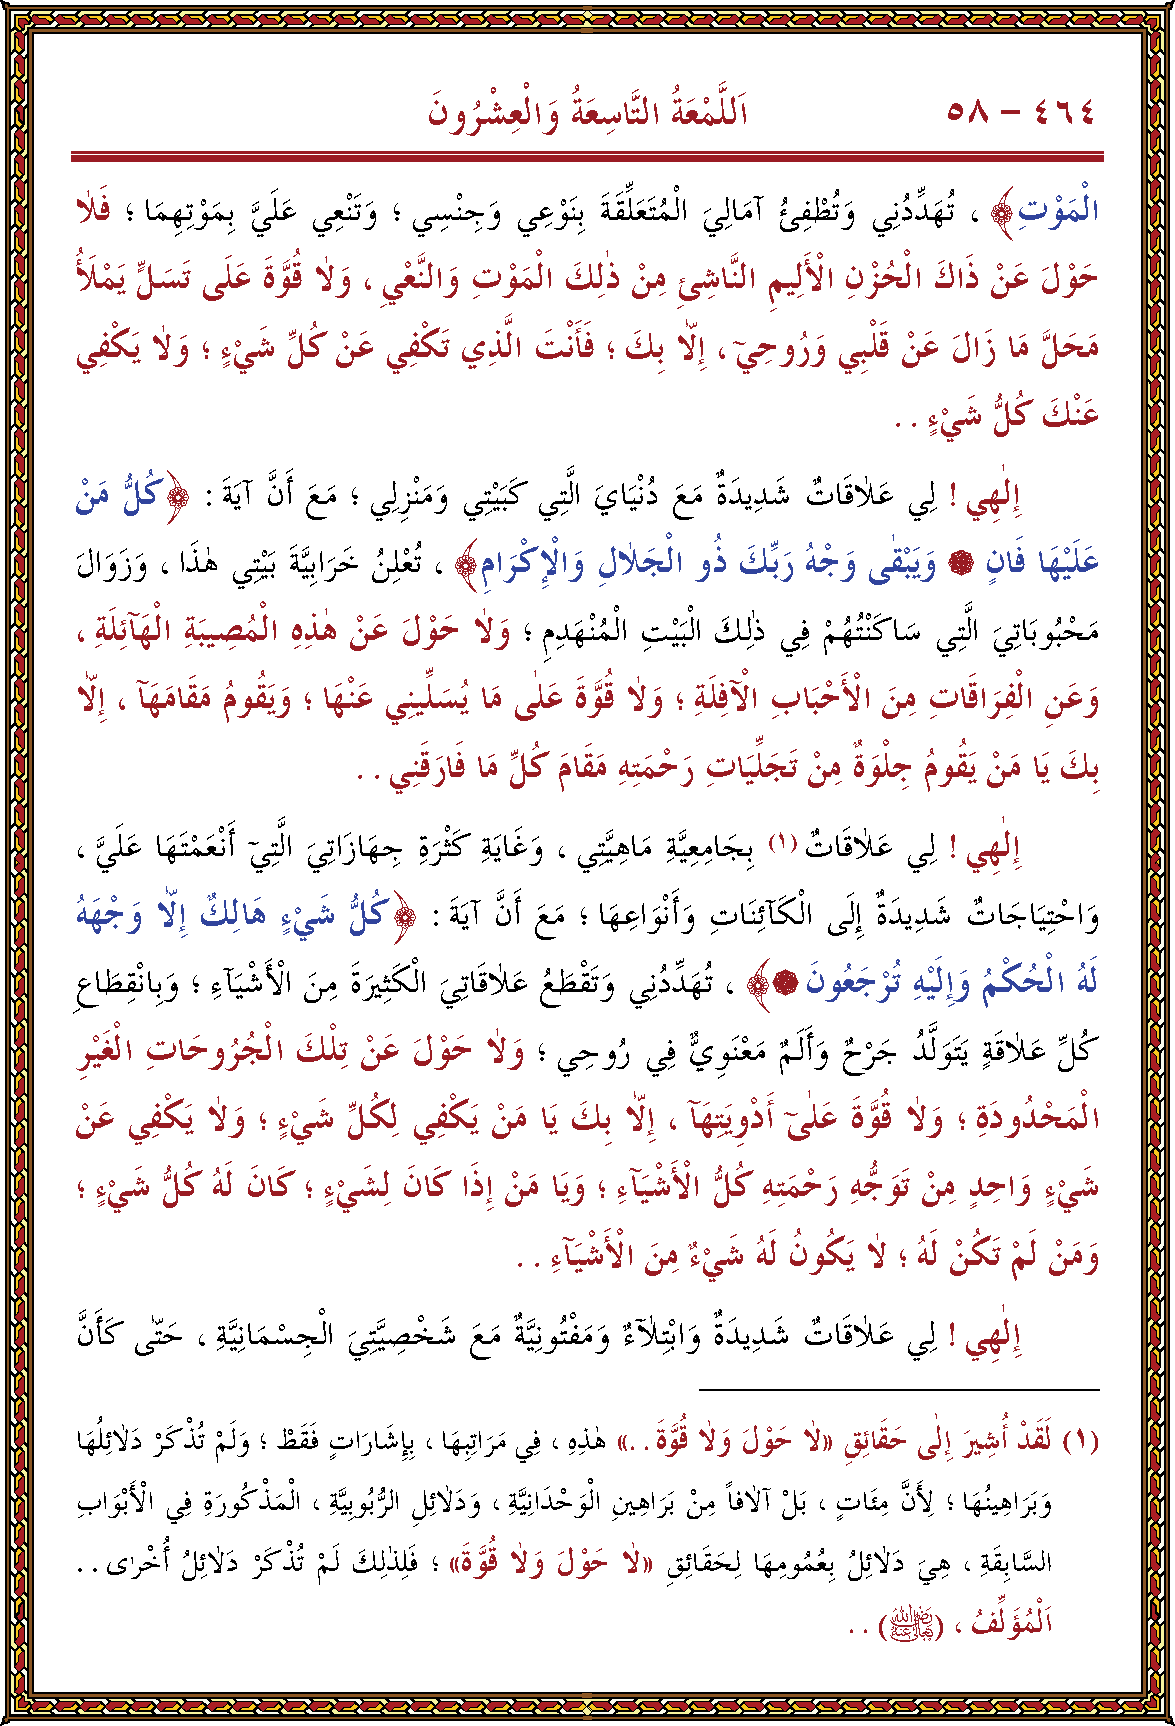 ٤٦٤ – ٥٨ اَللَّمْعَةُ التَّاسِعَةُ وَالْعِشْرُونَ
الْمَوْتِ﴾ ، تُهَدِّدُنِي وَتُطْفِئُ آمَالِيَ الْمُتَعَلِّقَةَ بِنَوْعِي وَجِنْسِي ؛ وَتَنْعِي عَلَيَّ بِمَوْتِهِمَا ؛ فَلَا
حَوْلَ عَنْ ذَاكَ الْحُزْنِ الْأَلِيمِ النَّاشِئِ مِنْ ذٰلِكَ الْمَوْتِ وَالنَّعْيِ ، وَلَا قُوَّةَ عَلَى تَسَلٍّ يَمْلَأُ
مَحَلَّ مَا زَالَ عَنْ قَلْبِي وَرُوحِيٓ ، إِلَّا بِكَ ؛ فَأَنْتَ الَّذِي تَكْفِي عَنْ كُلِّ شَيْءٍ ؛ وَلَا يَكْفِي
عَنْكَ كُلُّ شَيْءٍ . .
إِلٰهِي ! لِي عَلَاقَاتٌ شَدِيدَةٌ مَعَ دُنْيَايَ الَّتِي كَبَيْتِي وَمَنْزِلِي ؛ مَعَ أَنَّ آيَةَ : ﴿كُلُّ مَنْ
عَلَيْهَا فَانٍ ۝ وَيَبْقٰى وَجْهُ رَبِّكَ ذُو الْجَلَالِ وَالْإِكْرَامِ﴾ ، تُعْلِنُ خَرَابِيَّةَ بَيْتِي هٰذَا ، وَزَوَالَ
مَحْبُوبَاتِيَ الَّتِي سَاكَنْتُهُمْ فِي ذٰلِكَ الْبَيْتِ الْمُنْهَدِمِ ؛ وَلَا حَوْلَ عَنْ هٰذِهِ الْمُصِيبَةِ الْهَٓائِلَةِ ،
وَعَنِ الْفِرَاقَاتِ مِنَ الْأَحْبَابِ الْآفِلَةِ ؛ وَلَا قُوَّةَ عَلٰى مَا يُسَلِّينِي عَنْهَا ؛ وَيَقُومُ مَقَامَهَٓا ، إِلَّا
بِكَ يَا مَنْ يَقُومُ جِلْوَةٌ مِنْ تَجَلِّيَاتِ رَحْمَتِهِ مَقَامَ كُلِّ مَا فَارَقَنِي . .
إِلٰهِي ! لِي عَلَاقَاتٌ (١) بِجَامِعِيَّةِ مَاهِيَّتِي ، وَغَايَةِ كَثْرَةِ جِهَازَاتِيَ الَّتِيٓ أَنْعَمْتَهَا عَلَيَّ ،
وَاحْتِيَاجَاتٌ شَدِيدَةٌ إِلَى الْكَٓائِنَاتِ وَأَنْوَاعِهَا ؛ مَعَ أَنَّ آيَةَ : ﴿كُلُّ شَيْءٍ هَالِكٌ إِلَّا وَجْهَهُ
لَهُ الْحُكْمُ وَإِلَيْهِ تُرْجَعُونَ ۝﴾ ، تُهَدِّدُنِي وَتَقْطَعُ عَلَاقَاتِيَ الْكَثِيرَةَ مِنَ الْأَشْيَٓاءِ ؛ وَبِانْقِطَاعِ
كُلِّ عَلَاقَةٍ يَتَوَلَّدُ جَرْحٌ وَأَلَمٌ مَعْنَوِيٌّ فِي رُوحِي ؛ وَلَا حَوْلَ عَنْ تِلْكَ الْجُرُوحَاتِ الْغَيْرِ
الْمَحْدُودَةِ ؛ وَلَا قُوَّةَ عَلٰىٓ أَدْوِيَتِهَٓا ، إِلَّا بِكَ يَا مَنْ يَكْفِي لِكُلِّ شَيْءٍ ؛ وَلَا يَكْفِي عَنْ
شَيْءٍ وَاحِدٍ مِنْ تَوَجُّهِ رَحْمَتِهِ كُلُّ الْأَشْيَٓاءِ ؛ وَيَا مَنْ إِذَا كَانَ لِشَيْءٍ ؛ كَانَ لَهُ كُلُّ شَيْءٍ ؛
وَمَنْ لَمْ تَكُنْ لَهُ ؛ لَا يَكُونُ لَهُ شَيْءٌ مِنَ الْأَشْيَٓاءِ . .
إِلٰهِي ! لِي عَلَاقَاتٌ شَدِيدَةٌ وَابْتِلَٓاءٌ وَمَفْتُونِيَّةٌ مَعَ شَخْصِيَّتِيَ الْجِسْمَانِيَّةِ ، حَتّٰى كَأَنَّ
(١) لَقَدْ أُشِيرَ إِلٰى حَقَائِقِ «لَا حَوْلَ وَلَا قُوَّةَ . .» هٰذِهِ ، فِي مَرَاتِبِهَا ، بِإِشَارَاتٍ فَقَطْ ؛ وَلَمْ تُذْكَرْ دَلَائِلُهَا
وَبَرَاهِينُهَا ؛ لِأَنَّ مِئَاتٍ ، بَلْ آلَافاً مِنْ بَرَاهِينِ الْوَحْدَانِيَّةِ ، وَدَلَائِلِ الرُّبُوبِيَّةِ ، الْمَذْكُورَةِ فِي الْأَبْوَابِ
السَّابِقَةِ ، هِيَ دَلَائِلُ بِعُمُومِهَا لِحَقَائِقِ «لَا حَوْلَ وَلَا قُوَّةَ» ؛ فَلِذٰلِكَ لَمْ تُذْكَرْ دَلَائِلُ أُخْرٰى . .
اَلْمُؤَلِّفُ ، (رضي الله تعالى عنه) . .